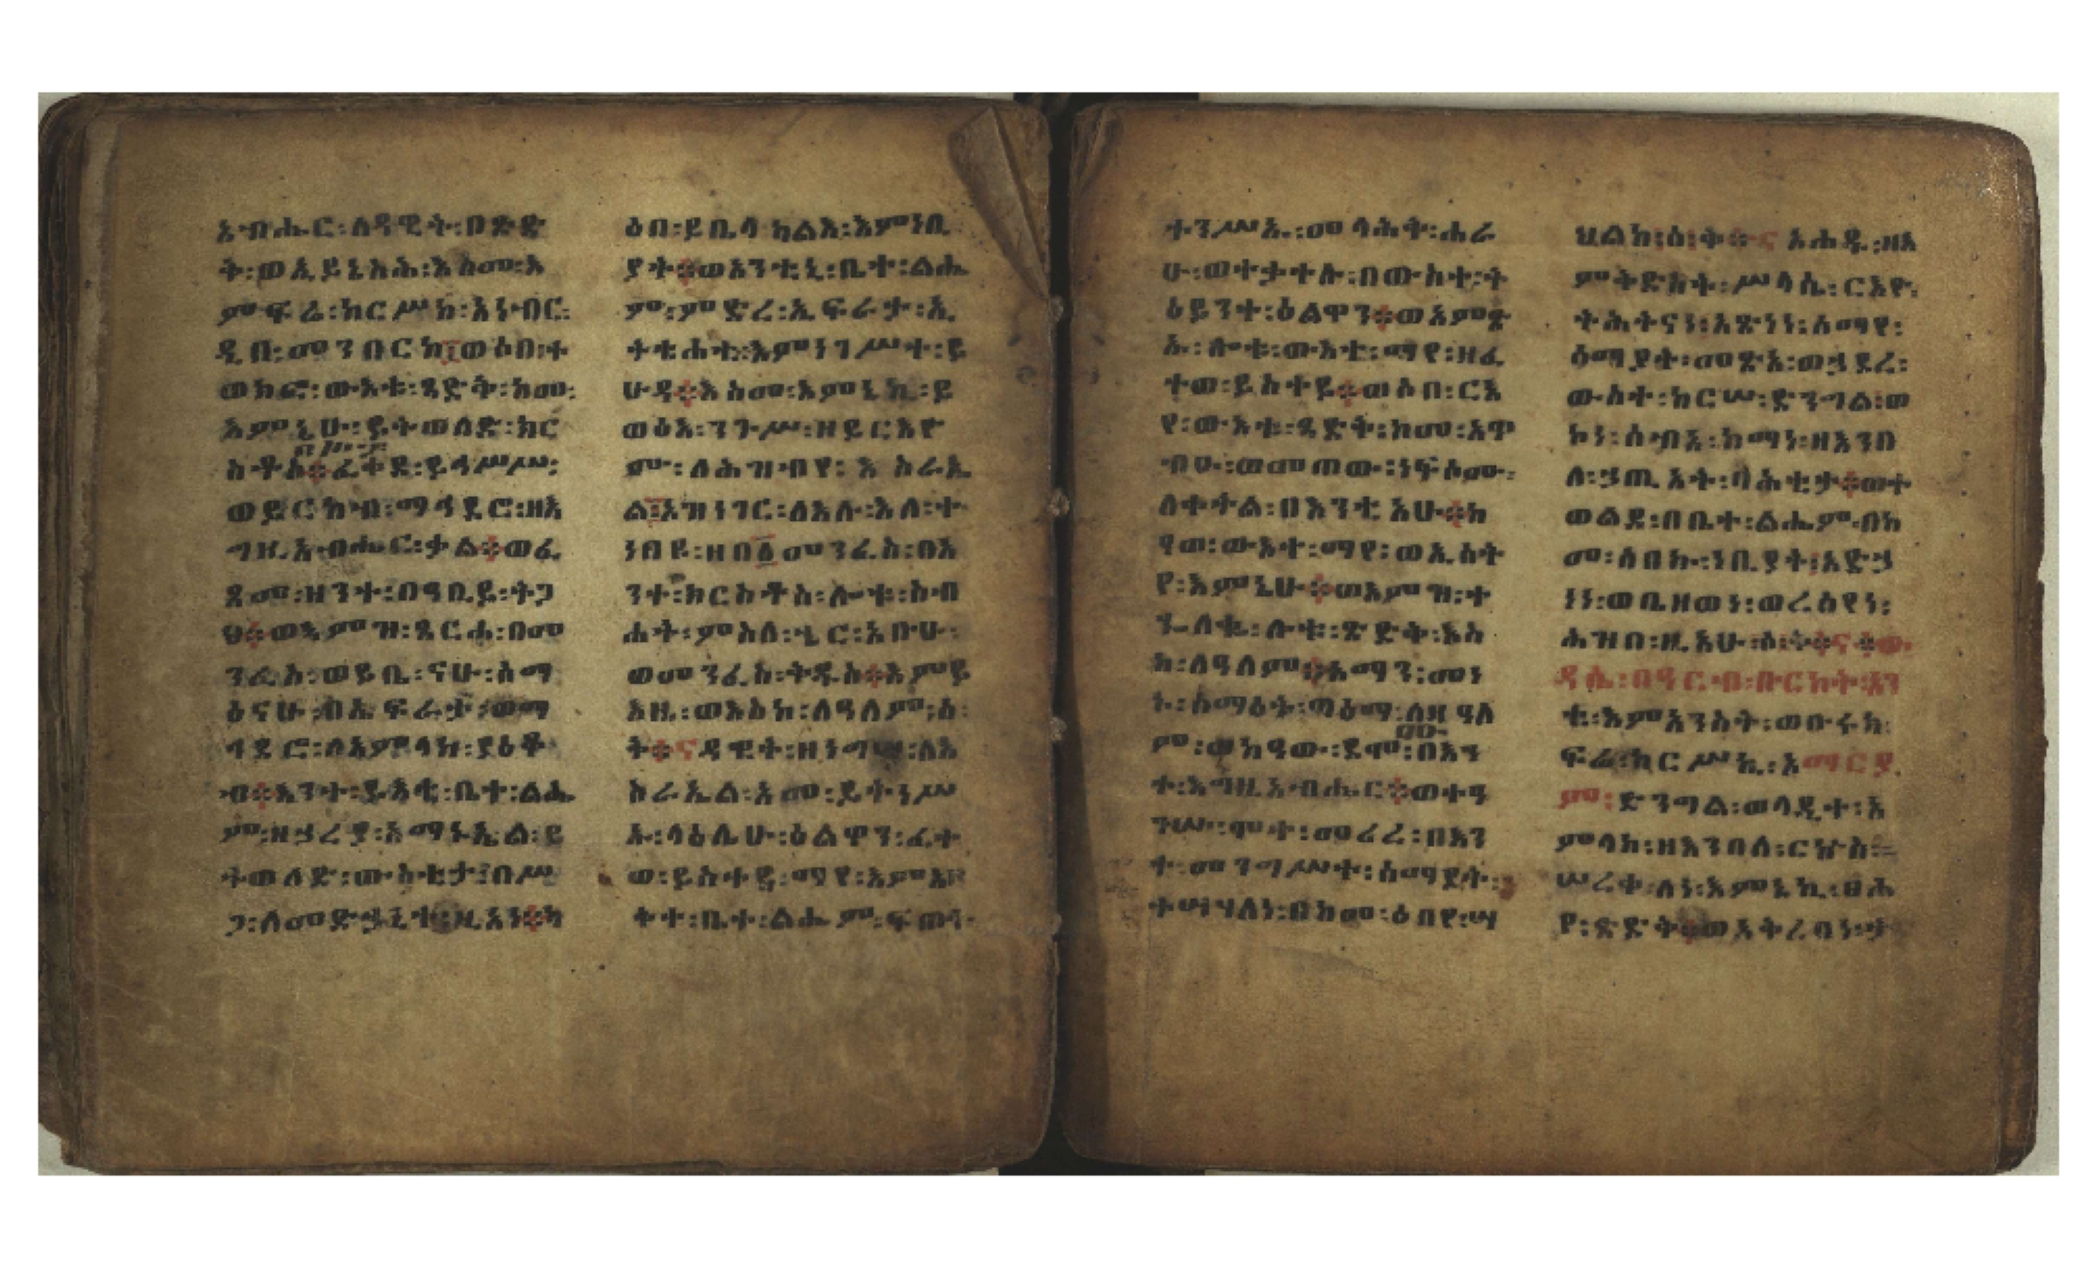 እብሔር፡ለዳዊት፡በጽድ
ቅ፡ወኢይኔስሕ፡እስመ፡እ
ምፍሬ፡ከርሥከ፡አነብር፡
ዲበ፡መንበርከ፡ወሶበ፡ተ
ወክፎ፡ውእቱ፡ጻድቅ፡ከመ፡
እምኔሁ፡ይትወለድ፡ክር
ስቶስ፡ፈቀደ፡ይኅሥሥ፡
ወይርከብ፡ማኅደሮ፡ለእ
ግዚአብሔር፡ቃል፡ወፈ
ጸመ፡ዘንተ፡በዓቢይ፡ትጋ
ህ፡ወእምዝ፡ጸርሐ፡በመ
ንፈስ፡ወይቤ፡ናሁ፡ሰማ
ዕናሁ፡በኤፍራታ፡ወማ
ኅደሮ፡ለአምላከ፡ያዕቆ
ብ፡እንተ፡ይእቲ፡ቤተ፡ልሔ
ም፡ዘኃረያ፡አማኑኤል፡ይ
ትወለድ፡ውስቴታ፡በሥ
ጋ፡ለመድኃኒተ፡ዚአነ፡ካ
ዕበ፡ይቤላ፡ካልእ፡እምነቢ
ያት፡ወአንቲኒ፡ቤተ፡ልሔ
ም፡ምድረ፡ኤፍራታ፡ኢ
ትቴሐቲ፡እምነገሥተ፡ይ
ሁዳ፡እስመ፡እምኔኪ፡ይ
ወፅእ፡ንጉሥ፡ዘይርእዮ
ሙ፡ለሕዝብየ፡እስራኤ
ል፡ኦዝነገር፡ለእሉ፡እለ፡ተ
ነበዩ፡ዘበ፩መንፈስ፡በእ
ንተ፡ክርስቶስ፡ሎቱ፡ስብ
ሐት፡ምስለ፡ኄር፡አቡሁ፡
ወመንፈስ፡ቅዱስ፡እምይ
እዜ፡ወእስከ፡ለዓለም፡ስ፡
ት፡ና፡ዳዊት፡ዘነግሠ፡ለእ
ስራኤል፡አመ፡ይትነሥ
ኡ፡ላዕሌሁ፡ዕልዋን፡ፈተ
ወ፡ይስተይ፡ማየ፡እምአዘ
ቅተ፡ቤተ፡ልሔም፡ፍጡነ፡
ተንሥኡ፡መላሕቅተ፡ሐራ
ሁ፡ወተቃተሉ፡በውስተ፡ት
ዕይንተ፡ዕልዋን፡ወአምጽ
ኡ፡ሎቱ፡ውእተ፡ማየ፡ዘፈ
ተወ፡ይስተይ፡ወሶበ፡ርእ
የ፡ውእቱ፡ጻድቅ፡ከመ፡አጥ
ብዑ፡ወመጠው፡ነፍሶሙ፡
ለቀትል፡በእንቲአሁ፡ከ
ዓወ፡ውእተ፡ማየ፡ወኢሰት
የ፡እምኔሁ፡ወእምዝ፡ተ
ኍለቈ፡ሎቱ፡ጽድቅ፡እስ
ከ፡ለዓለም፡አማን፡መነ
ኑ፡ሰማዕት፡ጣዕማ፡ለዛዓለ
ም፡ወከዓው፡ደሞሙ፡በእን
ተ፡እግዚአብሔር፡ወተዓ
ገሡ፡ሞተ፡መሪረ፡በእን
ተ፡መንግሥተ፡ሰማያት፡
ተሣሃለነ፡በከመ፡ዕበየ፡ሣ
ህልከ፡ስ፡ት፡ና፡አሐዱ፡ዘእ
ምቅድስት፡ሥላሴ፡ርእዮ፡
ትሕትናነ፡አጽነነ፡ሰማየ፡
ሰማያት፡መጽአ፡ወኃደረ፡
ውስተ፡ከርሠ፡ድንግል፡ወ
ኮነ፡ሰብአ፡ከማነ፡ዘእንበ
ለ፡ኃጢአት፡ባሕቲታ፡ወተ
ወልደ፡በቤተ፡ልሔም፡በከ
መ፡ሰበኩ፡ነቢያት፡አድኃ
ነነ፡ወቤዘወነ፡ወረሰየነ፡
ሕዝበ፡ዚአሁ፡ስ፡ት፡ና፡ው
ዳሴ፡በዓርብ፡ቡርክት፡አን
ቲ፡እምአንስት፡ወቡሩክ፡
ፍሬ፡ከርሥኪ፡ኦማርያ
ም፡ድንግል፡ወላዲተ፡አ
ምላክ፡ዘእንበለ፡ርኵስ፡
ሠረቀ፡ለነ፡እምኔኪ፡ፀሐ
የ፡ጽድቅ፡ወአቅረበነ፡ታ